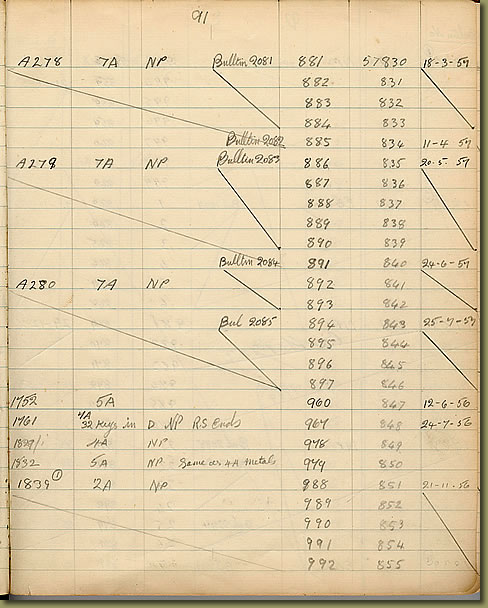 91
A278 7A NP Bulltin 2081 881 57830 18-3-57
882 831
883 832
884 833
Bulltin 2082 885 834 11-4 57
A279 7A NP Bulltin 2083 886 835 20.5.57
887 836
888 837
889 838
890 839
Bulltin 2084 891 840 24-6-57
A280 7A NP 892 841
893 842
Bul 2085 894 843 25-7-57
895 844
896 845
897 846
1752 5A 960 847 12-6-56
1761 4A 32 Keys in D NP R.S Ends 967 848 24-7-56
4A NP 978 849
1832 5A NP Same as 4A Metals 979 850
1839 ① 2A NP 988 851 21-11-56
989 852
990 853
991 854
992 855